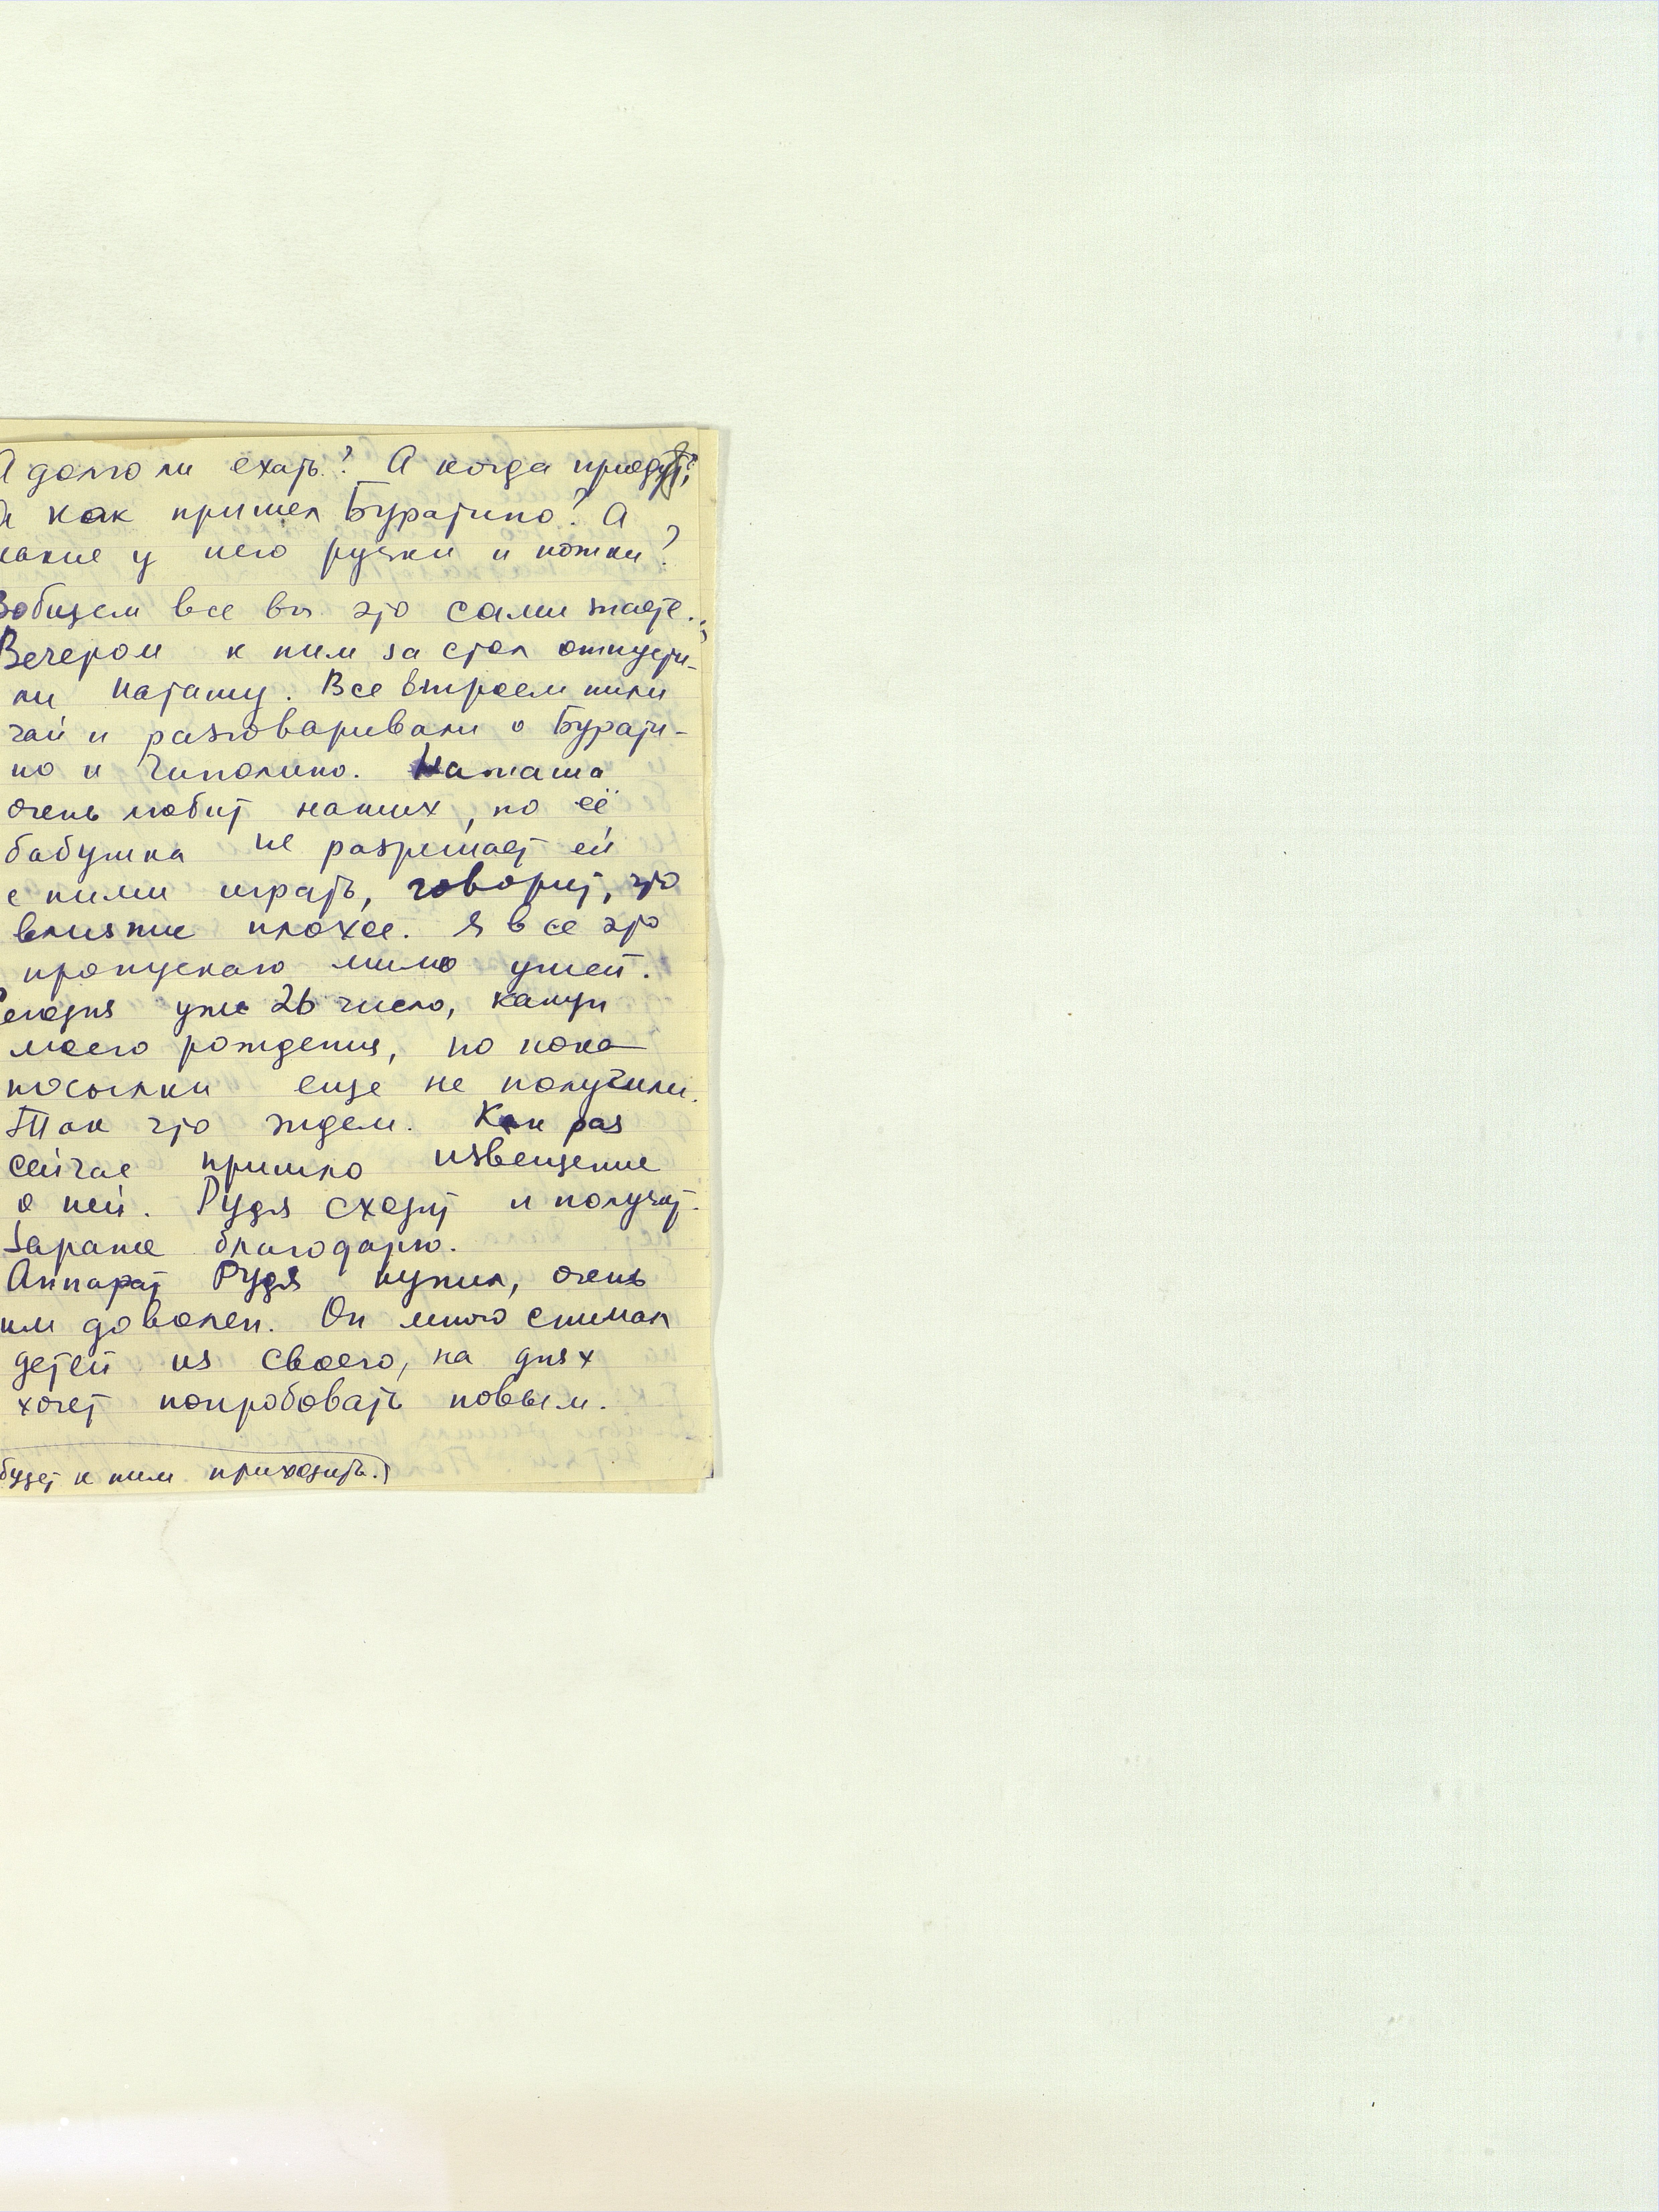 А долго ли ехать? А когда приедут?
А как пришел Буратино? А
какие у него ручки и ножки?
Вобщем все вы это сами знаете.
Вечером к ним за стол отпусти-
ли Наташу. Все втроем пили
чай и разговаривали о Бурати-
но и Чиполино. Наташа
очень любит наших, но её
бабушка не разрешает ей
с ними играть, говорит, что
влияние плохое. Я все это
пропускаю мимо ушей.
Сегодня уже 26 число, канун
моего рождения, но пока
посылки еще не получили.
Так что ждем. Как раз
сейчас пришло извещение
о ней. Рудя сходит и получит.
Заранее благодарю.
Аппарат Рудя купил, очень
им доволен. Он много снимал
детей из своего, на днях
хочет попробовать новым.
будет к ним приходить.)